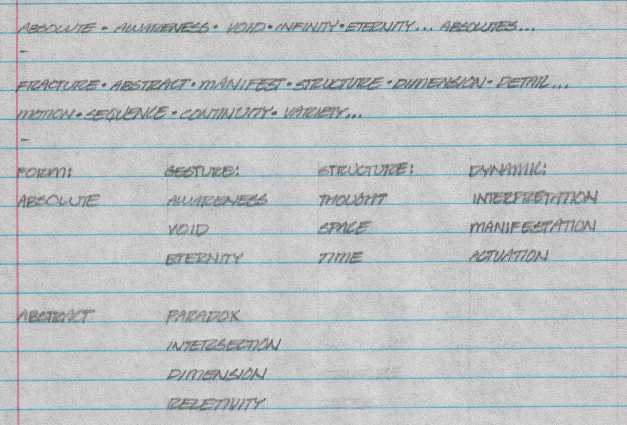 ABSOLUTE - AWARENESS • VOID • INFINITY • ETERNITY... ABSOLUTES...
-
FRACTURE • ABSTRACT • MANIFEST • STRUCTURE • DIMENSION • DETAIL...
MOTION • SEQUENCE • CONTINUITY • VARIETY...
-
FORM: GESTURE: STRUCTURE: DYNAMIC:
ABSOLUTE AWARENESS THOUGHT INTERPRETATION
VOID SPACE MANIFESTATION
ETERNITY TIME ACTUATION
ABSTRACT PARADOX
INTERSECTION
DIMENSION
RELETIVITY